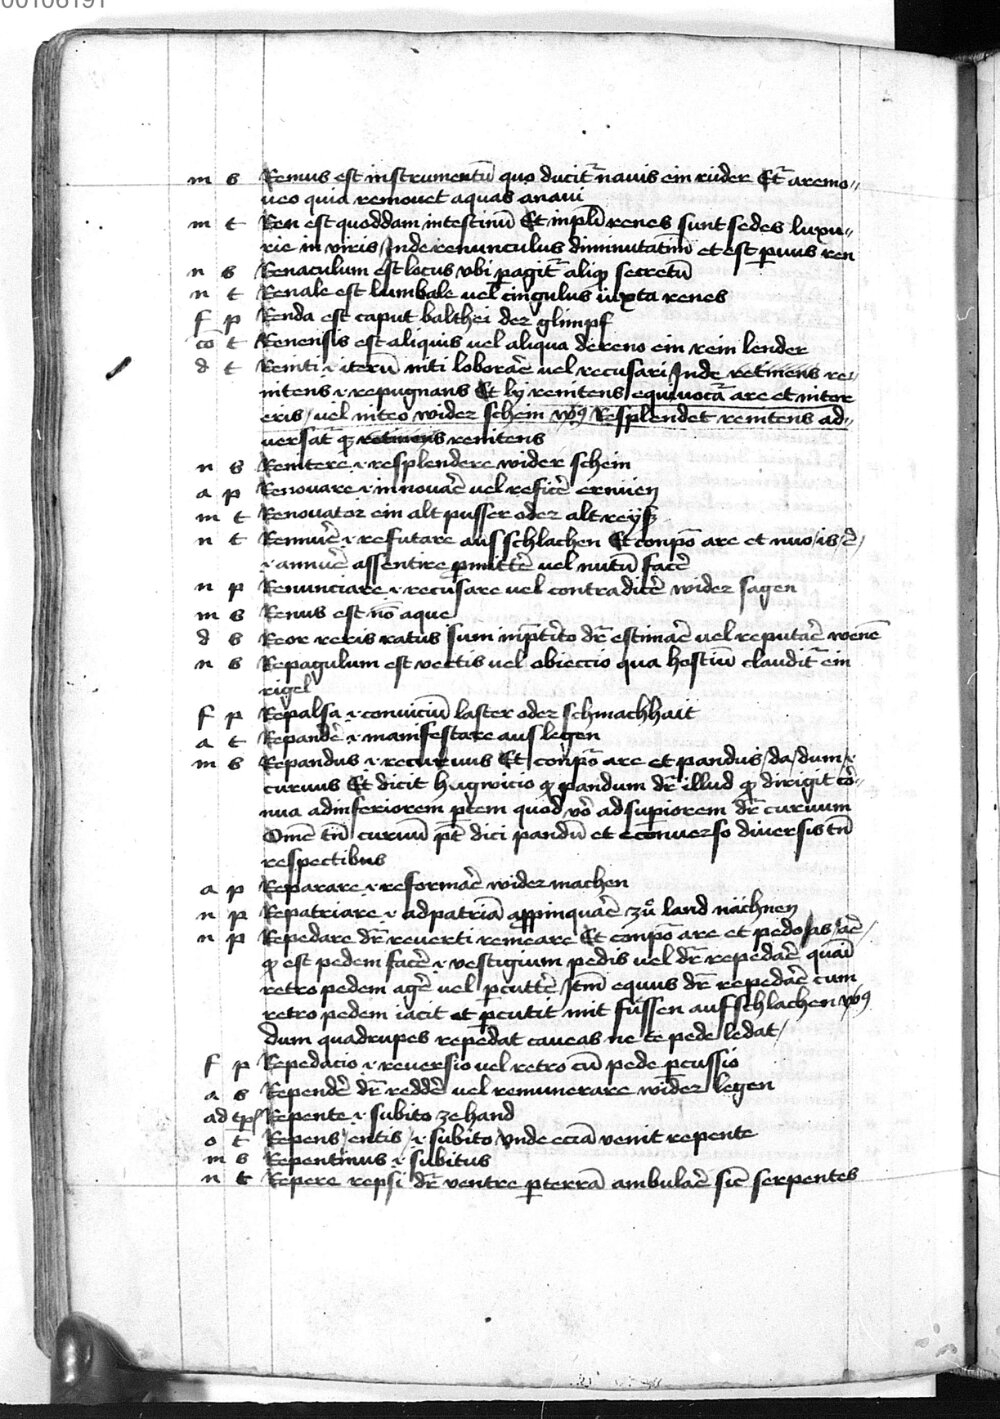 00106191
m s Remus est instrumentū quo ducit᷑ nauis ein růder Et᷑ aremo„
ueo quia remouet aquas anaui
m t Ren est quoddam intestinū Et inpl̄i renes sunt sedes luxu„
rie in viris / Inde renunculus diminutatiuū et est ꝑuus ren
n s Renaculum est locus vbi pagit᷑ aliqͥ secretū
n t Renale est lumbale uel cingulus iuxta renes
f p Renda est caput balthei der glimpf
cō t Renensis est aliquis uel aliqua dereno ein rein lender
d t Reniti .i. iterū niti loborar̄e uel recusari / Inde retinens re„
nitens .i. repugnans Et ly renitens equiuocat᷑ are et nitor
eris / uel niteo wider schein vꝰsꝰ Resplendet renitens ad„
uersat᷑ qꝫ retinens renitens
n s Renitere .i. resplendere wider schein
a p Renouare .i. innouar̄e uel reficer̄e ernüen
m t Renouator ein alt pusser oder alt reyß
n t Rennuer̄e .i. refutare aus schlachen Et conpo᷑ are et nuo / is / e᷑ /
.i. annuer̄e assentire ꝑmitter̄e uel nutū facer̄e
n p Renunciare .i. recusare uel contradicer̄e wider sagen
m s Renus est nō aque
d s Reor reris ratus sum inpret̄ito dr̄ estimar̄e uel reputar̄e wenē
n s Repagulum est vectis uel obieccio qua hostiū claudit᷑ ein
rigel
f p Repalsa .i. conuiciū laster oder schmachhait
a t Repander̄e .i. manifestare aus legen
m s Repandus .i. recuruus Et conpo᷑ are et pandus / da / dum .i.
curuus Et dicit hugwicio qͥ pandum dr̄ illud qͥ dirigit cō„
nua adinferiorem ꝑtem quod vō adsupiorem dr̄ curuum
Om̄e tn̄ curuū pt̄ dici pandū et econuerso diuersis tn̄
respectibus
a p Reparare .i. reformar̄e wider machen
n p Repatriare .i. ad patriā appinquar̄e zů land nächnen
n p Repedare dr̄ reuerti remeare Et conpo᷑ are et pedo / as / ar̄e /
qͥ est pedem facer̄e .i. vestigium pedis uel dr̄ repedar̄e quasi
retro pedem ager̄e uel ꝑcutter̄e / Itm̄ equus dr̄ repedar̄e cum
retro pedem iacit et ꝑcutit mit füssen auf schlachen vꝰsꝰ
Dum quadrupes repedat caueas ne te pede ledat /
f p Repedacio .i. reuersio uel retro cū pede ꝑcussio
a s Repender̄e dr̄ redder̄e uel remunerare wider legen
ad tp̄ſ Repente .i. subito ze hand
o t Repens / entis / .i. subito vnde eciā uenit repente
m s Repentinus .i. subitus
n t Repere repsi dr̄ ventre ꝑ terrā ambular̄e sic̄ serpentes